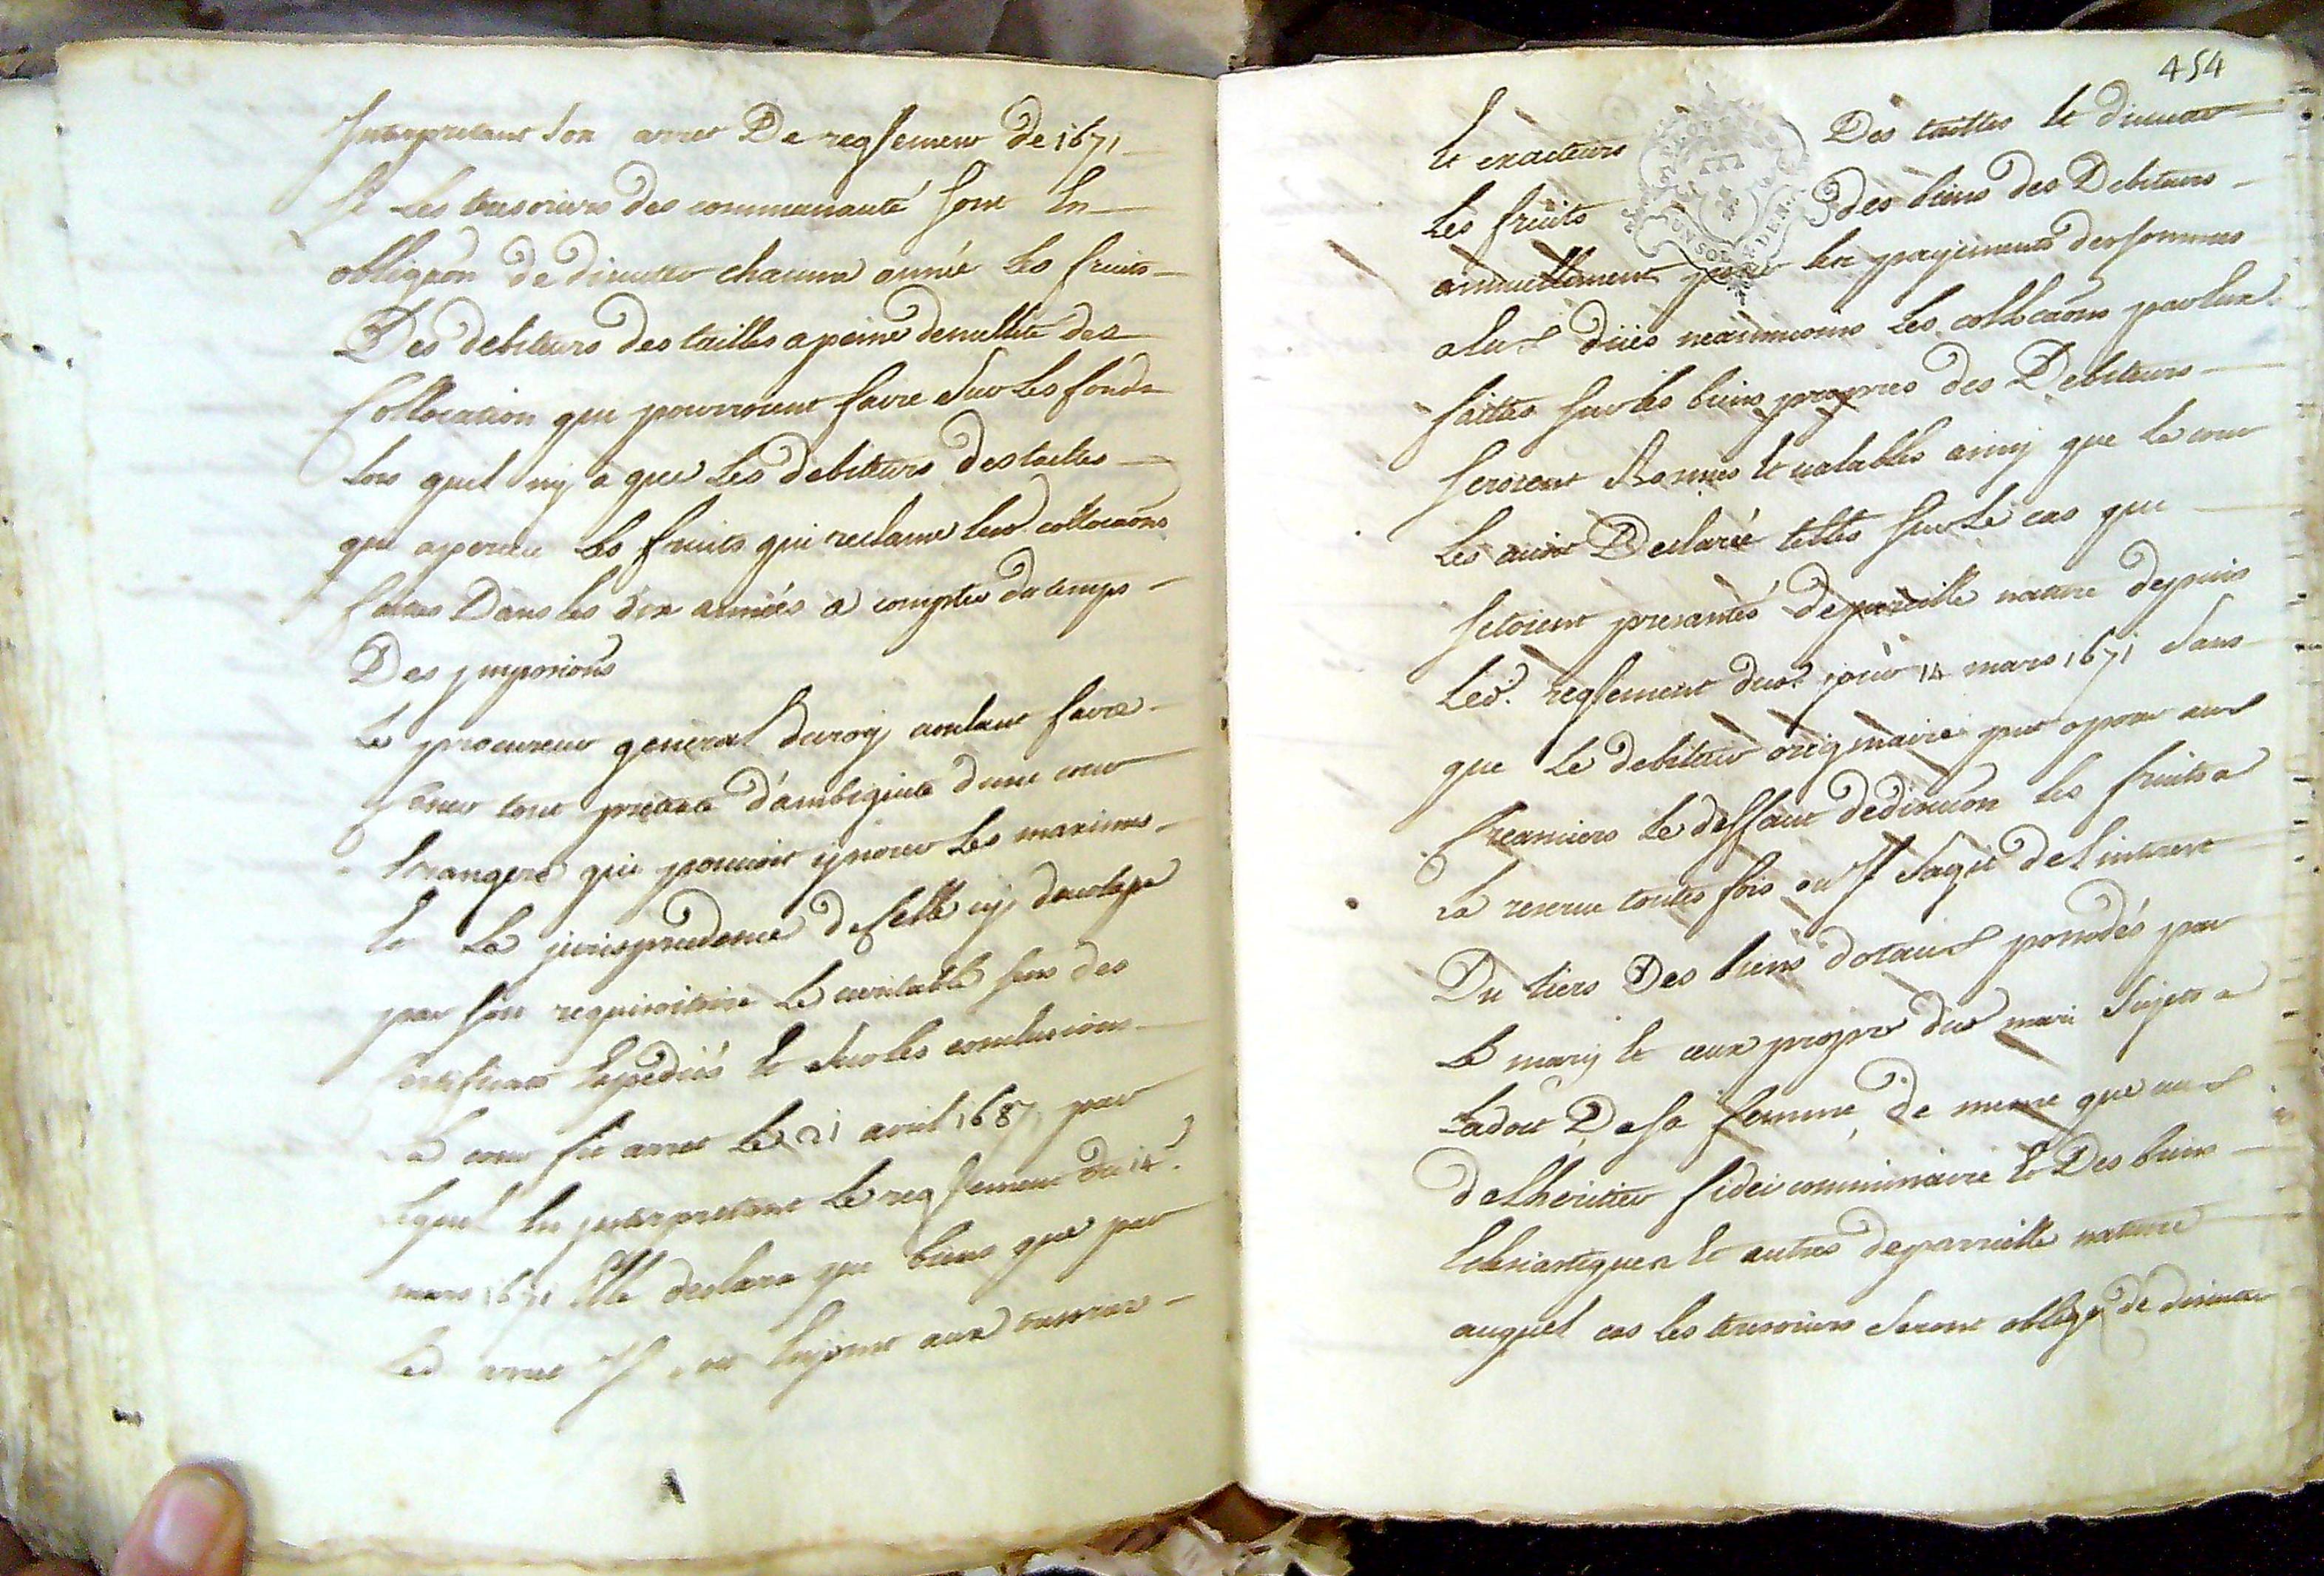 Interpretant son arret De reglement de 1671
Si Les tresoriers des communauté sont En
obligaon de discuter chacune année Les fruits
Des debiteurs des tailles a peine de nullité des
Collocation que pourroient faire Sur Les fonds
Lors quil ny a que Les debiteurs des tailles
qui apercu Les fruits qui reclame leur collocaons
faites Dans les dix années a compter du temps
Des jmposions
Le procureur general du roy voulant faire
tout pretexte d'ambiguité dune cour
Etrangere qui pouvoit ignorer Les maximes
Et La jurisprudence de Celle cy
par son requisitoire Le veritable sens des
Certificats Expediés Et Sur les conclusions
La cour fit arret Le 21 avril 1687 par
lequel En jnterpretant Le reglement du 14
mars 1671 Elle declara que biens que par
Led arret Il soit Enjoint aux tresoriers
454
Et exacteurs Des tailles Et discuter
Les fruits des biens des Debiteurs
annuellement pour Les payements des sommes
a lux düës neanmoins Les collocaons par lux
faittes sur les biens propres des Debiteurs
seroient Bonnes Et valables ainsy que La cour
Les avoit Declarée telles sur Le cas que
setoient presantés de pareille nature depuis
Led. reglement dud. jour 14 mars 1671 Sans
que Le debiteur originaire put oposer aux
Creanciers Le deffaut de discution des fruits a
La reserve toutes fois ou Il Sagit de Linterest
Du tiers Des biens dotaux possedés par
Le mary Et ceux propre dud mari Sujets a
Ladot De sa femme, de meme que aux
de Lheritier fidei commissaire Et Des biens
Et autres de parreille nature
auquel cas les tresoriers Seront obligé de discuter